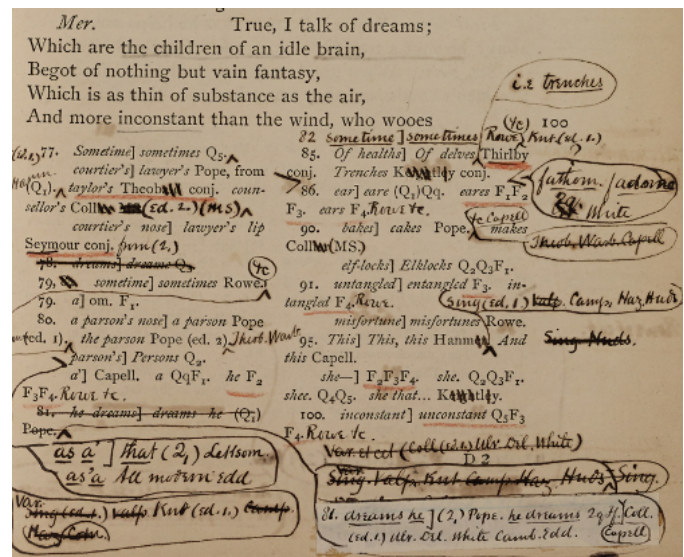 Mer. True, I talk of dreams;
Which are the children of an idle brain,
Begot of nothing but vain fantasy,
Which is as thin of substance as the air,
And more inconstant than the wind, who wooes
i.e trenches
(yc) 100
77. Sometime] sometimes Q5.
courtier's] lawyer's Pope, from
(Q1). taylor's Theob conj. coun-
sellor's Coll (Ed. 2.) (MS)
courtier's nose] lawyer's lip
Seymour conj.
78. dreams] dreame Q3
79. sometime] sometimes Rowe.
79. a] om. F1.
80. a parson's nose] a parson Pope
(ed. 1). the parson Pope (ed. 2). Theob. Warb.
parson's] Persons Q2.
a'] Capell. a QqF1. he F2
F3F4. Rowe &c.
81. he dreams] dreams he (Q1)
Pope.
as a'] that (2,) Lettsom
as 'a All modern edd
Var.
Sing (ed. 1.) Valp. Knt (ed. 1.) Camp.
Haz. Corn.
82 sometime] sometimes Rowe Knt (ed. 1.)
85. Of healths] Of delves Thirlby
conj. Trenches Keightley conj.
86. ear] eare (Q1)Qq. eares F1F2
F3. ears F4. Rowe &c.
90. bakes] cakes Pope, makes
Coll (MS.)
elf-locks] Elklocks Q2Q3F1.
91. untangled] entangled F3. in-
tangled F4. Rowe.
misfortune] misfortunes Rowe.
95. This] This, this Hanmer. And
this Capell.
she—] F2F3F4. she. Q2Q3F1.
shee. Q4Q5. she that... Keightley.
100. inconstant] unconstant Q5F3
F4. Rowe &c.
D 2
fathom.
White
&c Capell
Theob. Warb. Capell
Sing (ed. 1) Valp. Camp. Haz. Huds
Sing. Huds.
Var. et cet (Coll (ed. 1) Ulr. Del. White)
Var.
Sing. Valp. Knt Camp. Haz. Huds. Sing.
81. dreams he] (2,) Pope. he dreams 2qFf. Coll.
(Ed. 1) Ulr. Del. White Camb. Edd. Capell